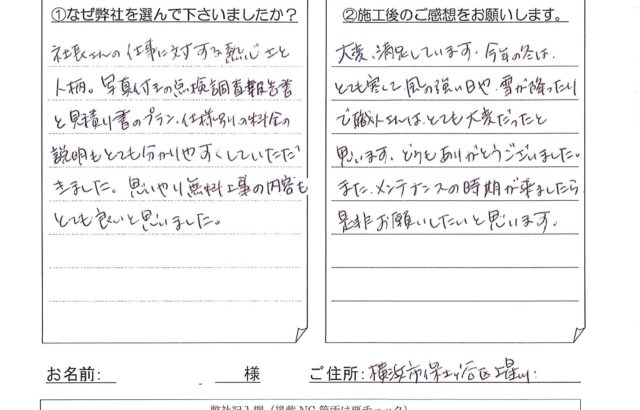 ①なぜ弊社を選んで下さいましたか？
社長さんの仕事に対する熱心さと
人柄。写真付きの点検調査報告書
と見積り書のプラン、仕様別の料金の
説明もとても分かりやすくしていただ
きました。思いやり無料工事の内容も
とても良いと思いました。
②施工後のご感想をお願いします。
大変、満足しています。今年の冬は、
とても寒くて、風の強い日や、雪が降ったり
で職人さんは、とても大変だったと
思います。どうもありがとうございました。
また、メンテナンスの時期が来ましたら
是非お願いしたいと思います。
お名前：　様　ご住所：横浜市保土ヶ谷区上星川
弊社記入欄（掲載NG箇所は要チェック）